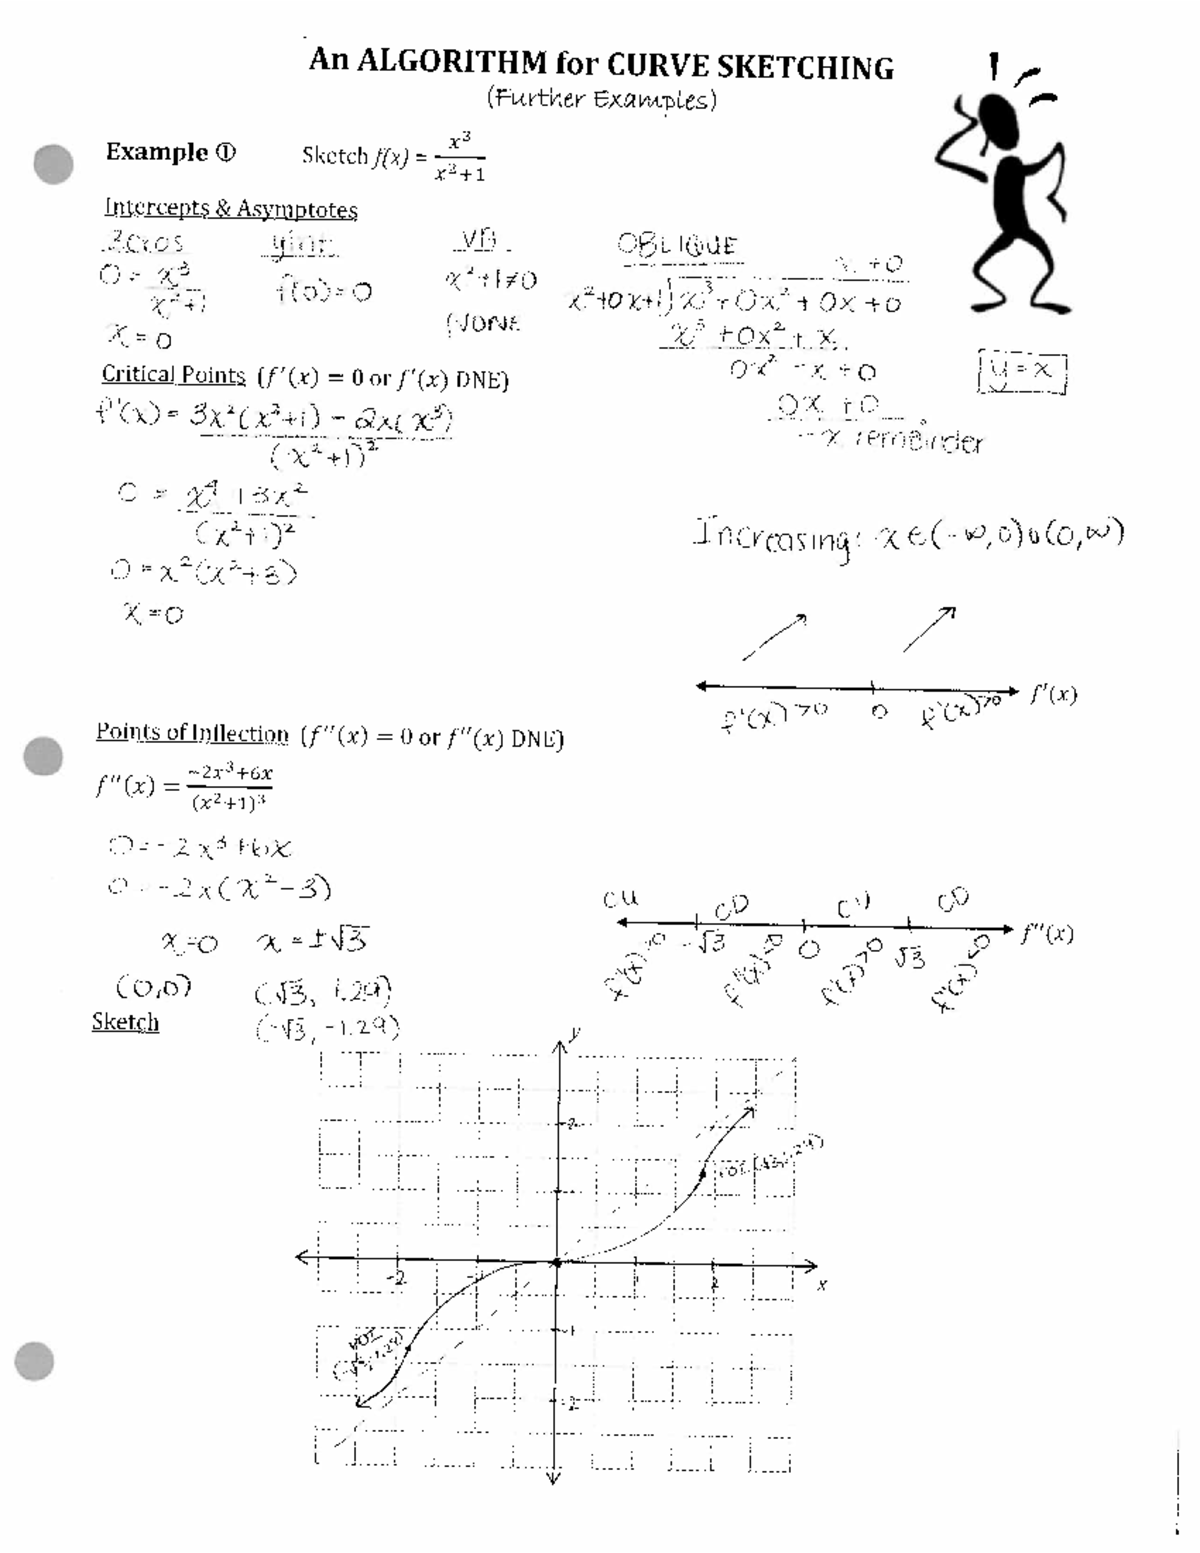 An ALGORITHM for CURVE SKETCHING
(Further Examples)
Example ① Sketch f(x) = x³/(x²+1)
Intercepts & Asymptotes
Zeros yint: VA OBLIQUE
0 = x³/(x²+1) f(0)=0 x²+1≠0
x=0 NONE
x+0
x²+0x+1)x³+0x²+0x+0
x³+0x²+x
0x²-x+0
0x+0
-x remainder
y=x
Critical Points (f′(x) = 0 or f′(x) DNE)
f'(x) = (3x²(x²+1) - 2x(x³))/(x²+1)²
0 = (x⁴+3x²)/(x²+1)²
0=x²(x²+3)
x=0
Increasing: x∈(-∞,0)∪(0,∞)
f′(x)
f'(x)>0 0 f'(x)>0
Points of Inflection (f″(x) = 0 or f″(x) DNE)
f″(x) = (−2x³+6x)/(x²+1)³
0=-2x³+6x
0=-2x(x²-3)
x=0 x=±√3
(0,0) (√3, 1.29)
(-√3, -1.29)
CU CD CU CD
f″(x)
-√3 0 √3
f"(x)>0 f"(x)<0 f"(x)>0 f"(x)<0
Sketch
y
2
POI (√3,1.29)
-2 -1 1 2
x
-1
POI
(-√3,-1.29)
-2